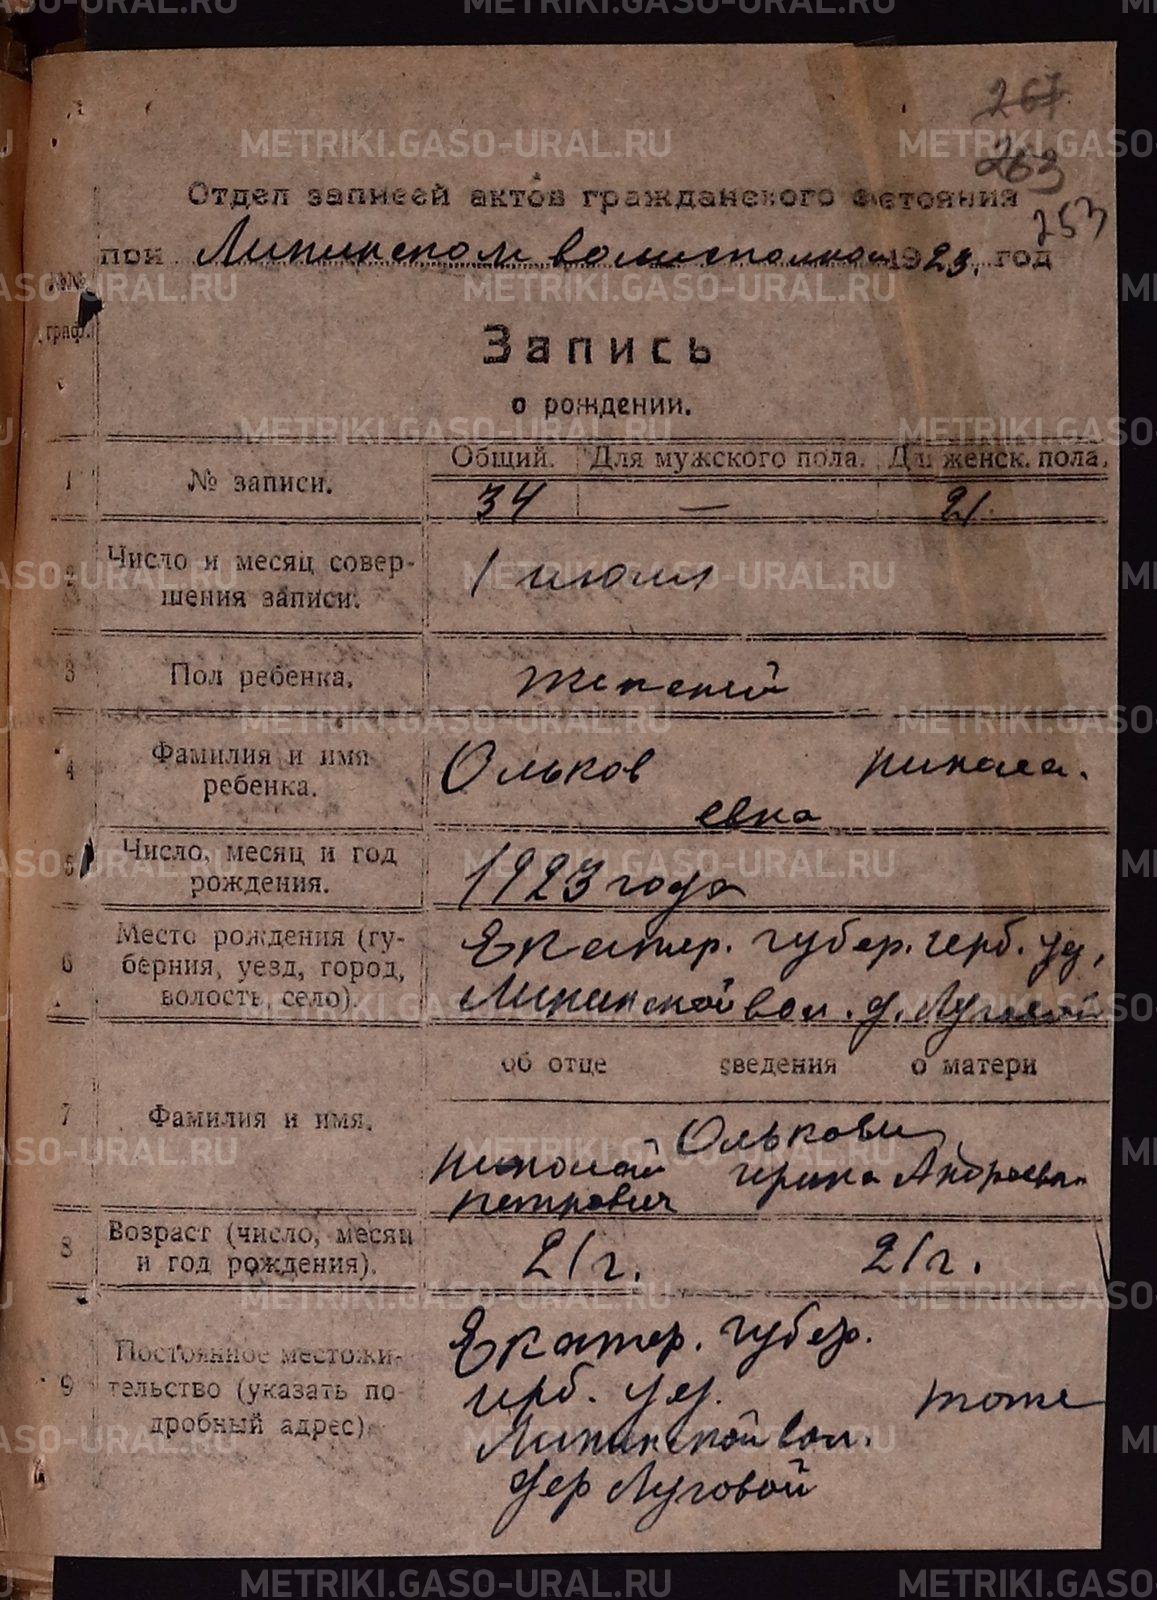 267
263
253
Отдел записей актов гражданского состояния
при Липинском волисполкоме 1923, год
№№ граф.
Запись
о рождении.
1 № записи. Общий. Для мужского пола. Для женск. пола.
34 — 21
2 Число и месяц совер-
шения записи. 1 июля
3 Пол ребенка. женский
4 Фамилия и имя
ребенка. Ольков Никола.
евна
5 Число, месяц и год
рождения. 1923 года
6 Место рождения (гу-
берния, уезд, город,
волость, село). Екатер. губер. Ирб. уез,
Липинской вол. д. Луговой
об отце сведения о матери
7 Фамилия и имя. Ольковы
Николай Ирина Андреевна
Петрович
8 Возраст (число, месяц
и год рождения). 21 г. 21 г.
9 Постоянное местожи-
тельство (указать по-
дробный адрес) Екатер. губер.
Ирб. уез. тоже
Липинской вол.
дер Луговой
METRIKI.GASO-URAL.RU